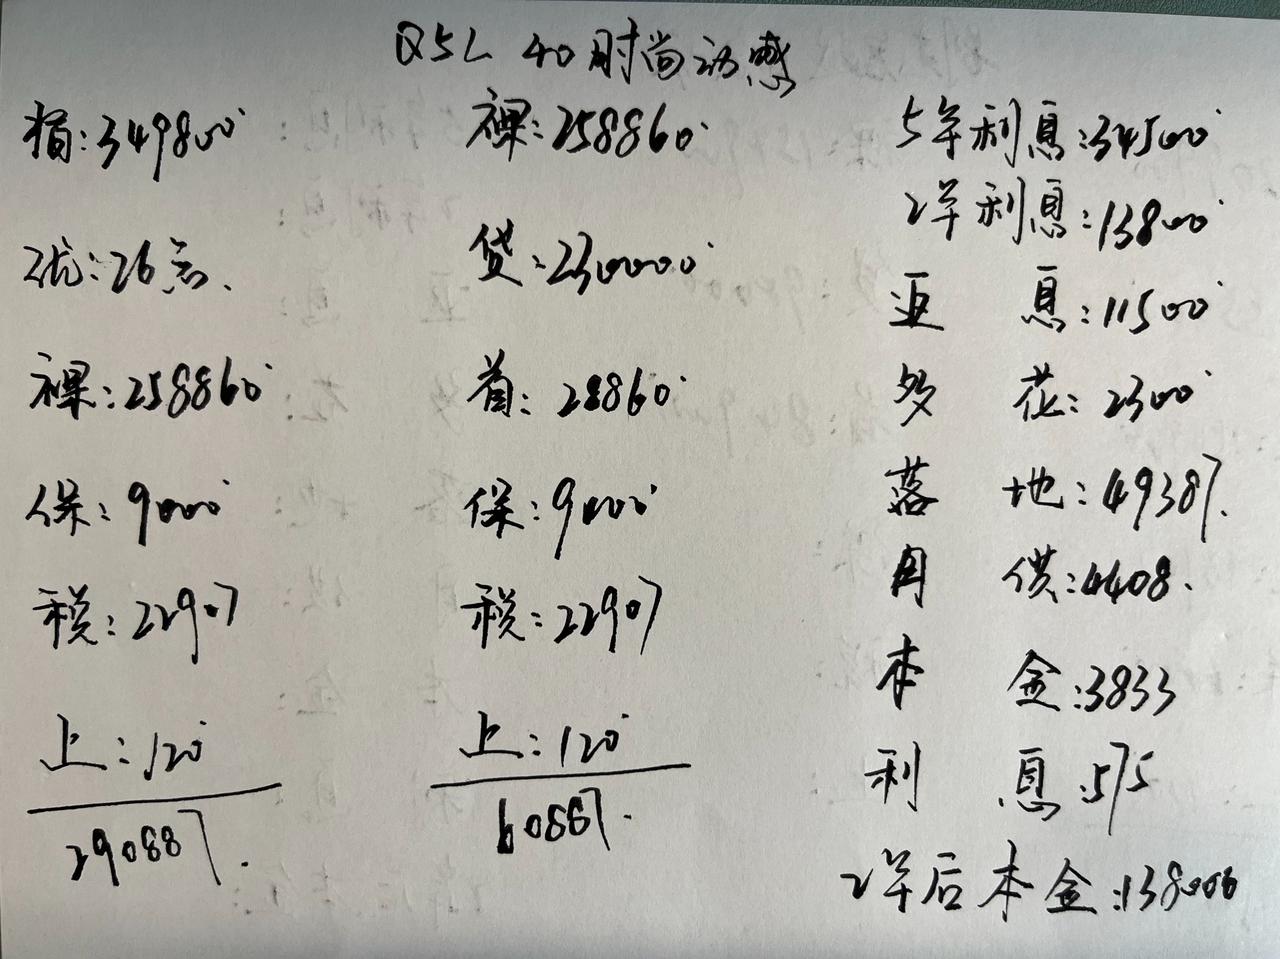 Q5L 40时尚动感
指:349800
优:26点.
裸:258860
保:9000
税:22907
上:120
290887.
裸:258860
贷:230000
首:28860
保:9000
税:22907
上:120
60887.
5年利息:34500
2年利息:13800
返 息:11500
多 花:2300
落 地:49387.
月 供:4408.
本 金:3833
利 息:575
2年后本金:138000